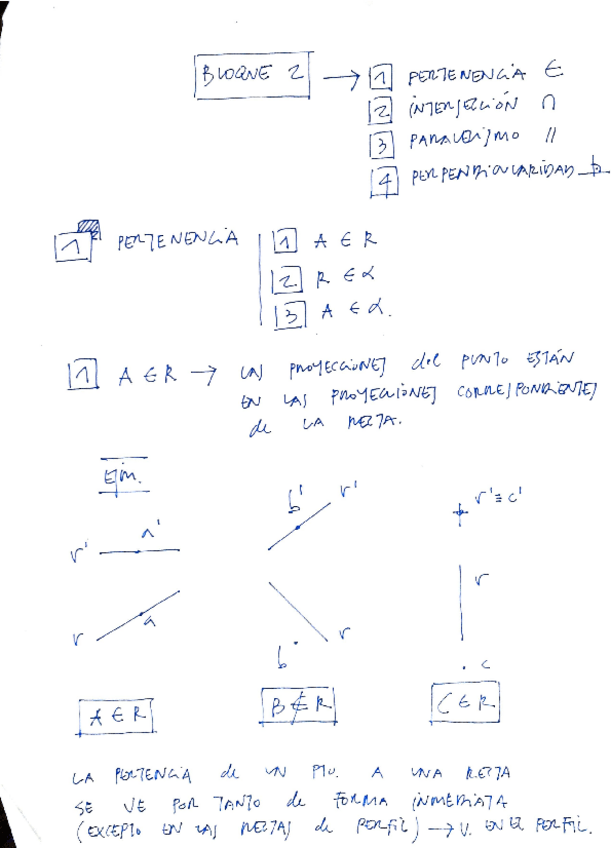 BLOQUE 2 → 1 PERTENENCIA ∈
2 INTERSECCIÓN ∩
3 PARALELISMO //
4 PERPENDICULARIDAD ⊥
1 PERTENENCIA
1 A ∈ R
2 R ∈ α
3 A ∈ α.
1 A ∈ R → LAS PROYECCIONES del PUNTO ESTÁN
EN LAS PROYECCIONES CORRESPONDIENTES
de LA RECTA.
Ejm.
r' a'
r a
b' r'
b r
r' ≡ c'
r
c
A ∈ R
B ∉ R
C ∈ R
LA PERTENCIA de UN PTO. A UNA RECTA
SE VE POR TANTO de FORMA INMEDIATA
(EXCEPTO EN LAS RECTAS de PERFIL) → V. EN EL PERFIL.